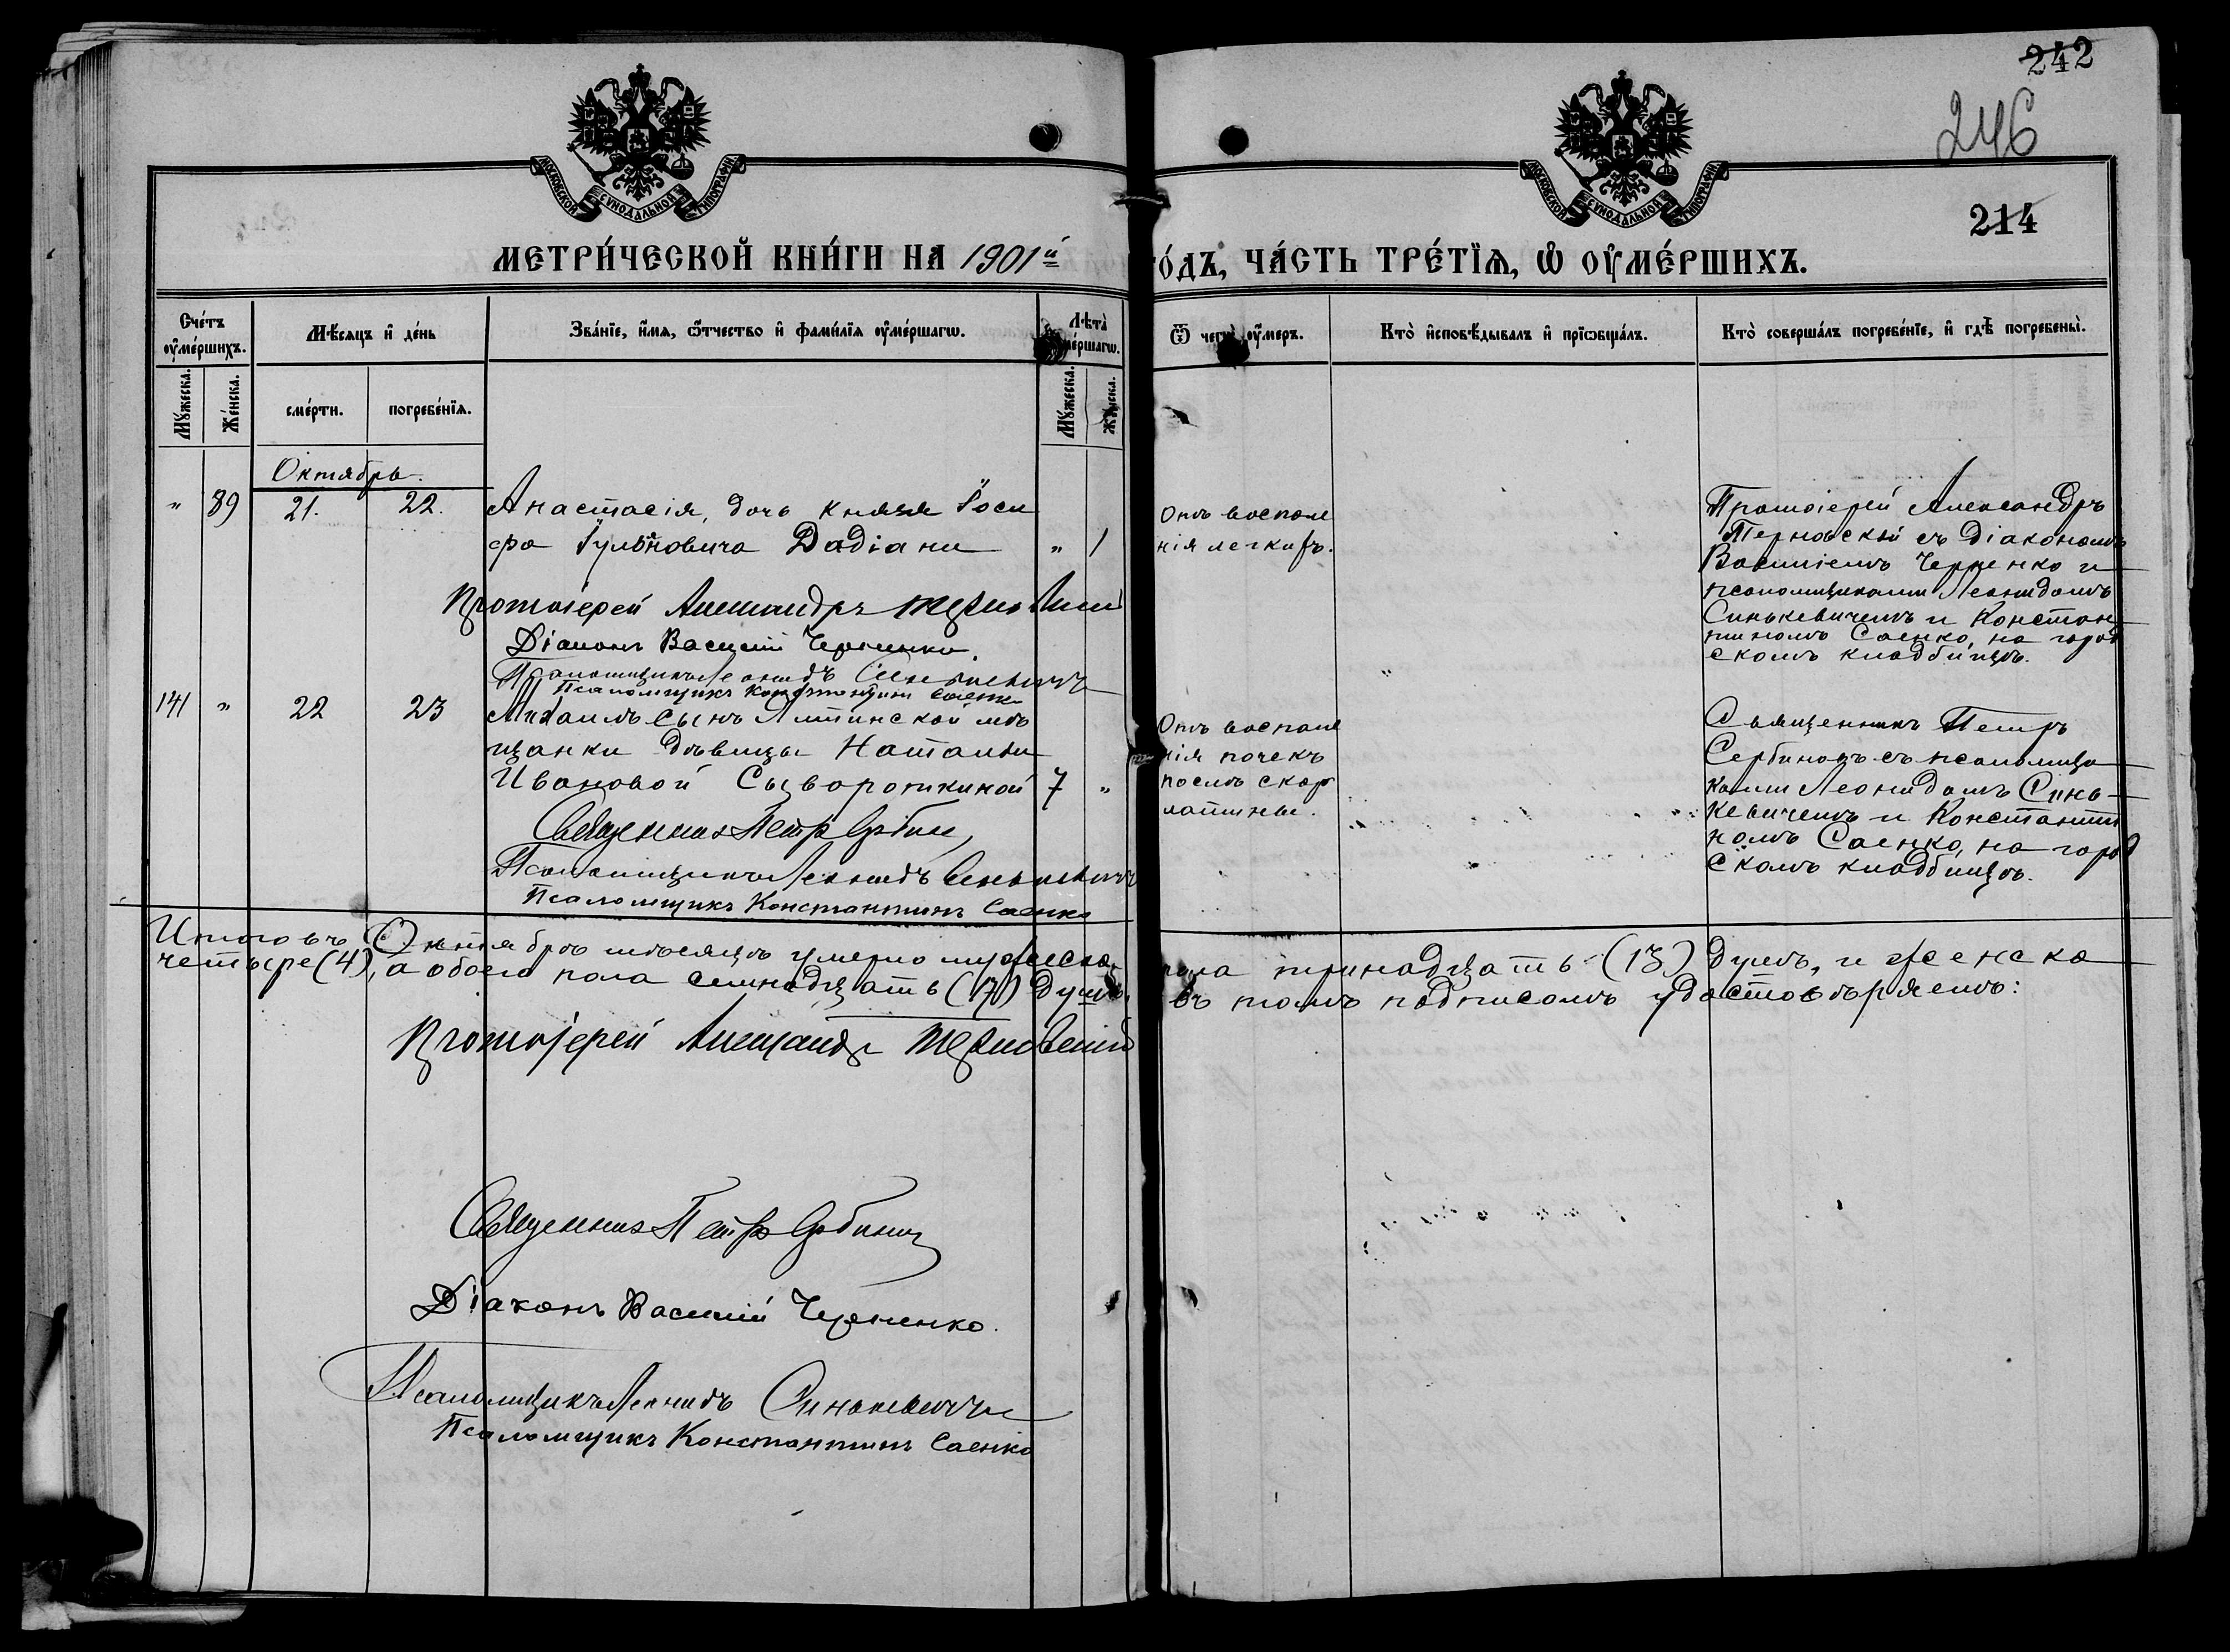 242
246
214
МОСКОВСКОЙ СѴНОДАЛЬНОЙ ТИПОГРАФІИ
МОСКОВСКОЙ СѴНОДАЛЬНОЙ ТИПОГРАФІИ
МЕТРИ́ЧЕСКОЙ КНИ́ГИ НА 1901й
го́дъ, ЧА́СТЬ ТРЕ́ТЇѦ, Ѡ ОУ҆МЕ́РШИХЪ.
Сче́тъ оу҆ме́ршихъ.
Мѣ́сяцъ и҆ де́нь
Зва́нїе, и҆́мя, ѻ҆́тчество и҆ фами́лїя оу҆ме́ршагѡ.
Лѣта̀ оу҆ме́ршагѡ.
Ѿ чегѡ̀ оу҆́меръ.
Кто̀ и҆сповѣ́дывалъ и҆ прїѡбща́лъ.
Кто̀ соверша́лъ погребе́нїе, и҆ гдѣ̀ погребены̀.
Мꙋ́жеска.
Же́нска.
сме́рти.
погребе́нїя.
Мꙋ́жеска.
Же́нска.
Октябрь.
" 89 21. 22. Анастасія, дочь князя Іоси
фа Гульновича Дадіани " 1
Отъ воспале
нія легкихъ.
Протоіерей Александръ
Терновскій съ Діакономъ
Василіемъ Черненко и
псаломщиками Леонидомъ
Синькевичемъ и Констан
тиномъ Саенко, на город
скомъ кладбищѣ.
Протоіерей Александръ Терновскій
Діаконъ Василій Черненко.
Псаломщикъ Леонидъ Синькевичъ
Псаломщикъ Константинъ Саенко
141 " 22 23 Михаилъ сынъ Ялтинской мѣ
щанки дѣвицы Наталіи
Ивановой Сывороткиной 7 "
Отъ воспале
нія почекъ
послѣ скар
латины.
Священникъ Петръ
Сербиновъ съ псаломщи
ками Леонидомъ Синь-
кевичемъ и Константи
номъ Саенко, на город
скомъ кладбищѣ.
Священникъ Петръ Сербинов
Псаломщикъ Леонидъ Синькевичъ
Псаломщикъ Константинъ Саенко
Итого въ Октябрѣ мѣсяцѣ умерло мужеска пола тринадцать (13) душъ, и женска
четыре (4), а обоего пола семнадцать (17) душъ, въ томъ подписомъ удостовѣряемъ:
Протоіерей Александръ Терновскій
Священникъ Петръ Сербинов
Діаконъ Василій Черненко.
Псаломщикъ Леонидъ Синькевичъ
Псаломщикъ Константинъ Саенко